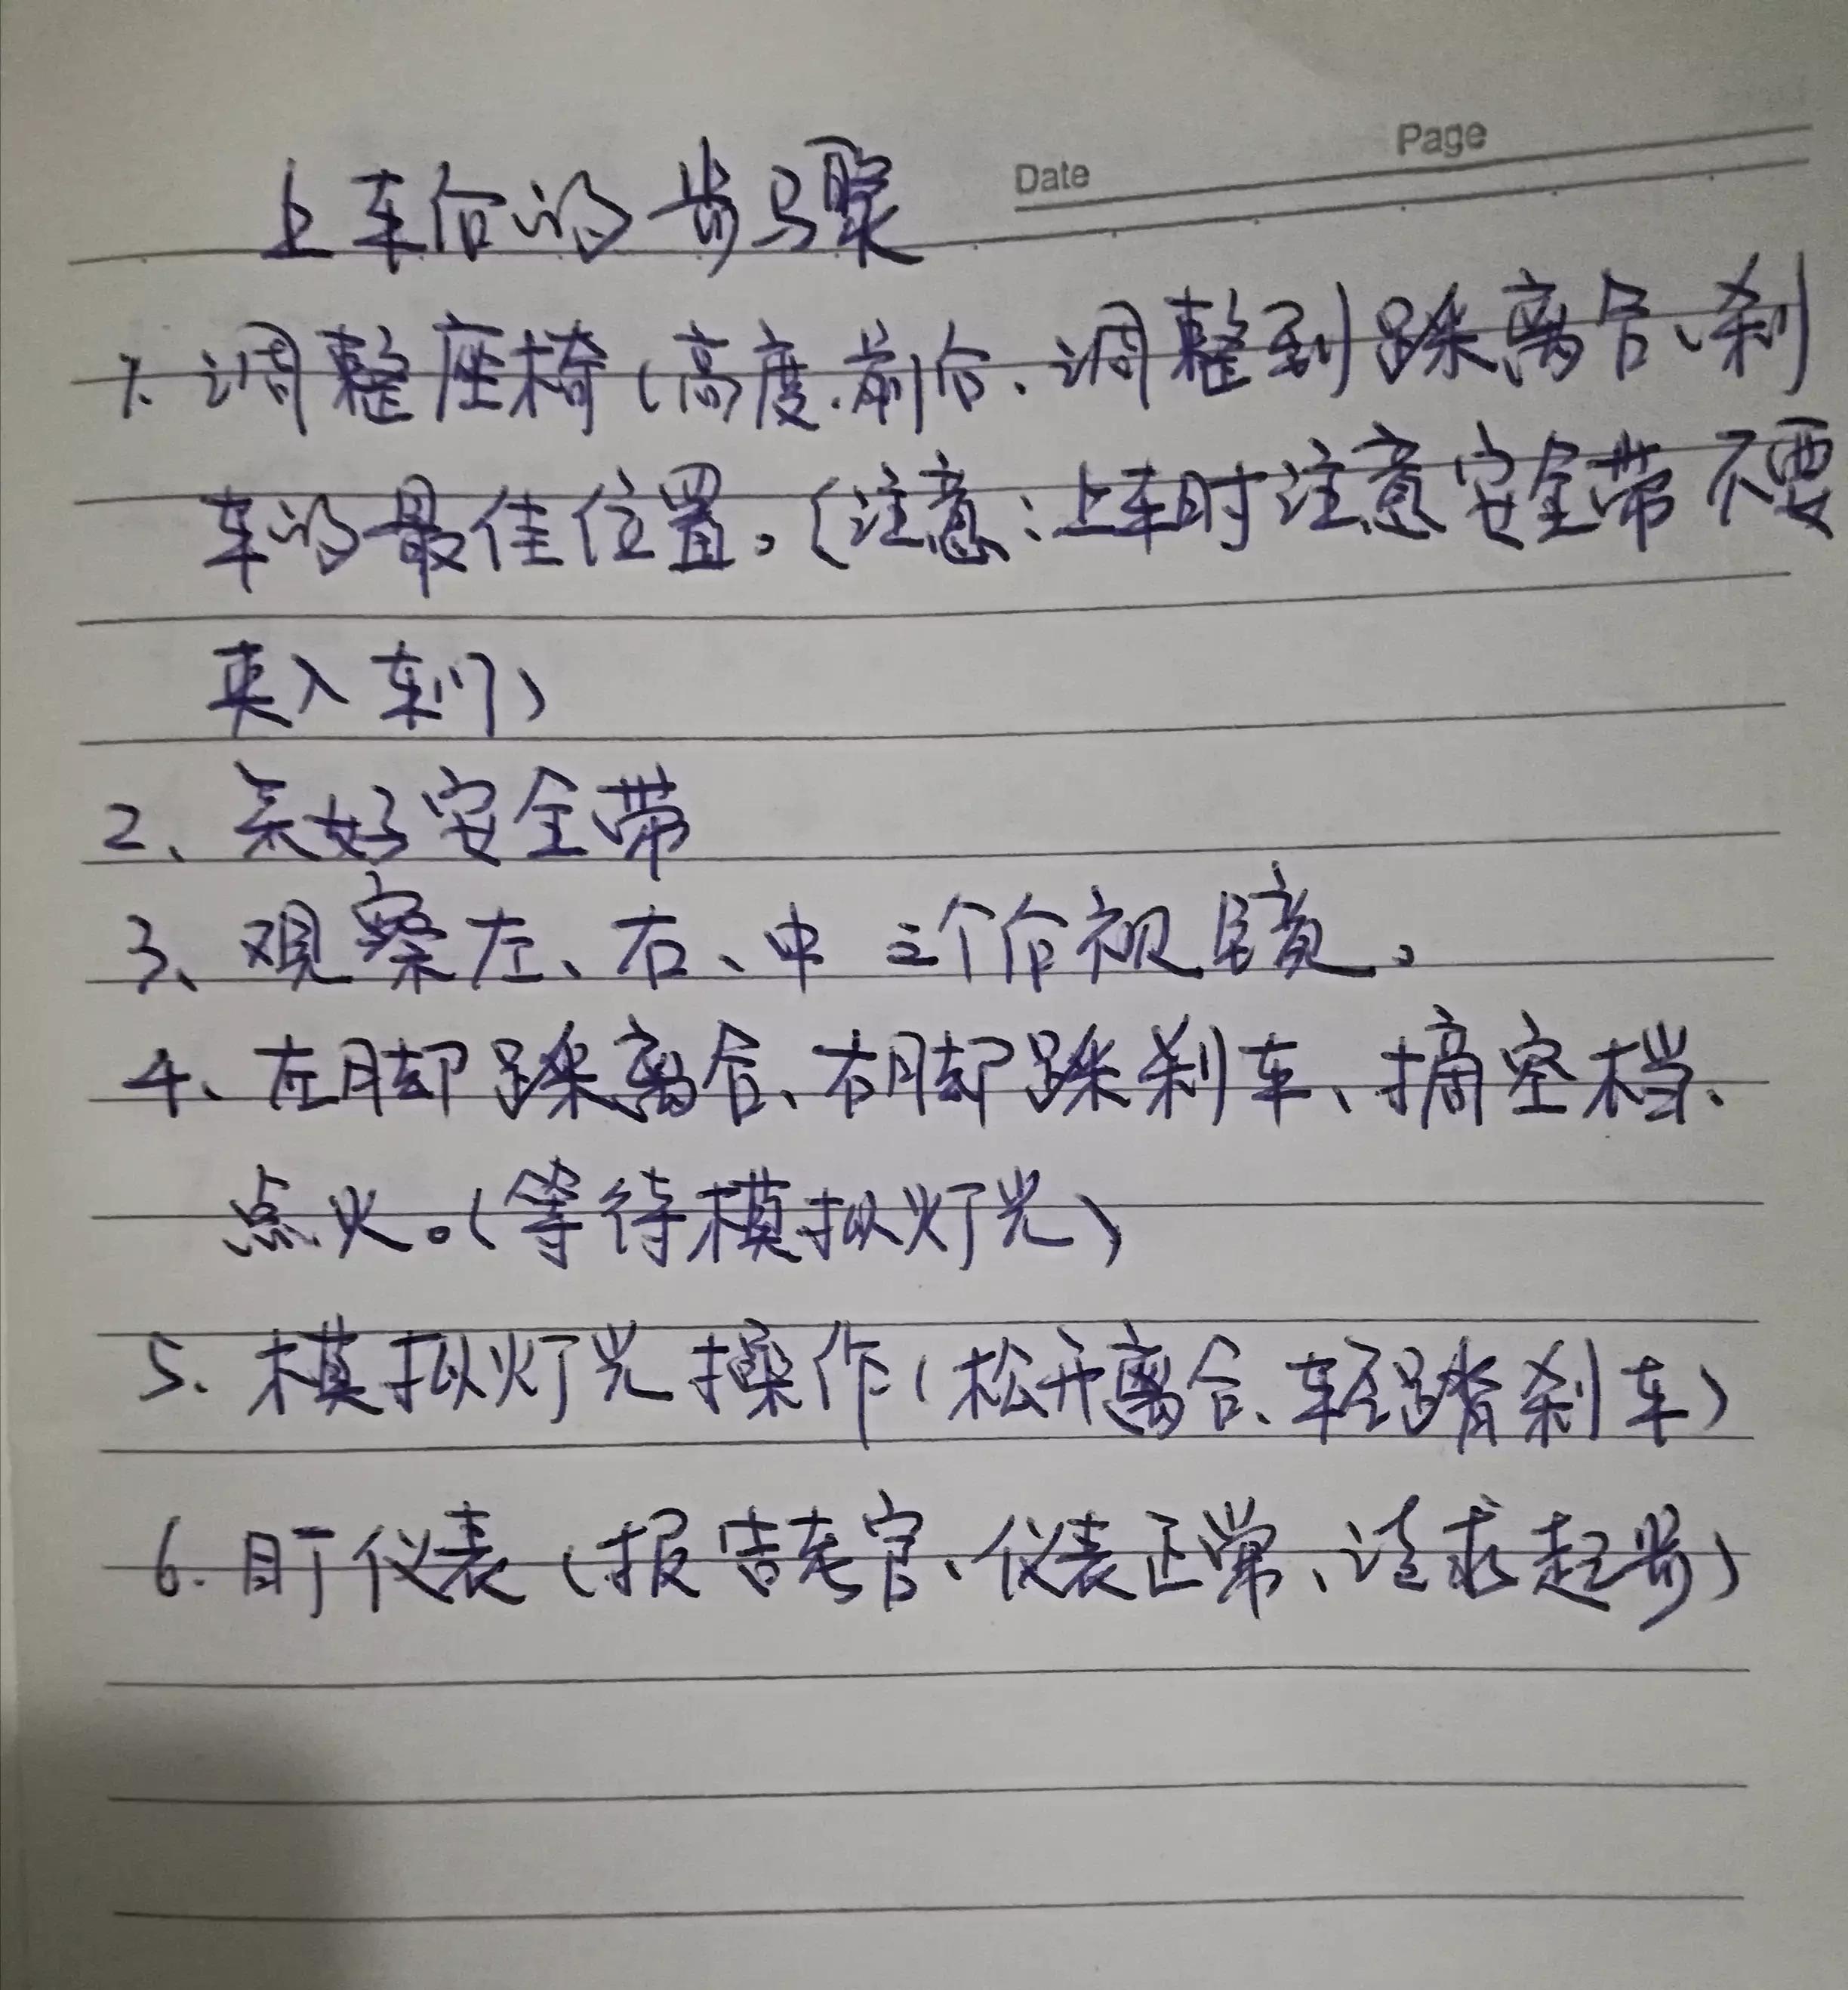 Page
Date
上车后的步骤
1. 调整座椅(高度.前后、调整到踩离合、刹
车的最佳位置。(注意:上车时注意安全带不要
夹入车门)
2、系好安全带
3、观察左、右、中 三个后视镜。
4、左脚踩离合、右脚踩刹车、摘空档、
点火。(等待模拟灯光)
5. 模拟灯光操作(松开离合、轻踏刹车)
6. 盯仪表(报告考官、仪表正常、请求起步)